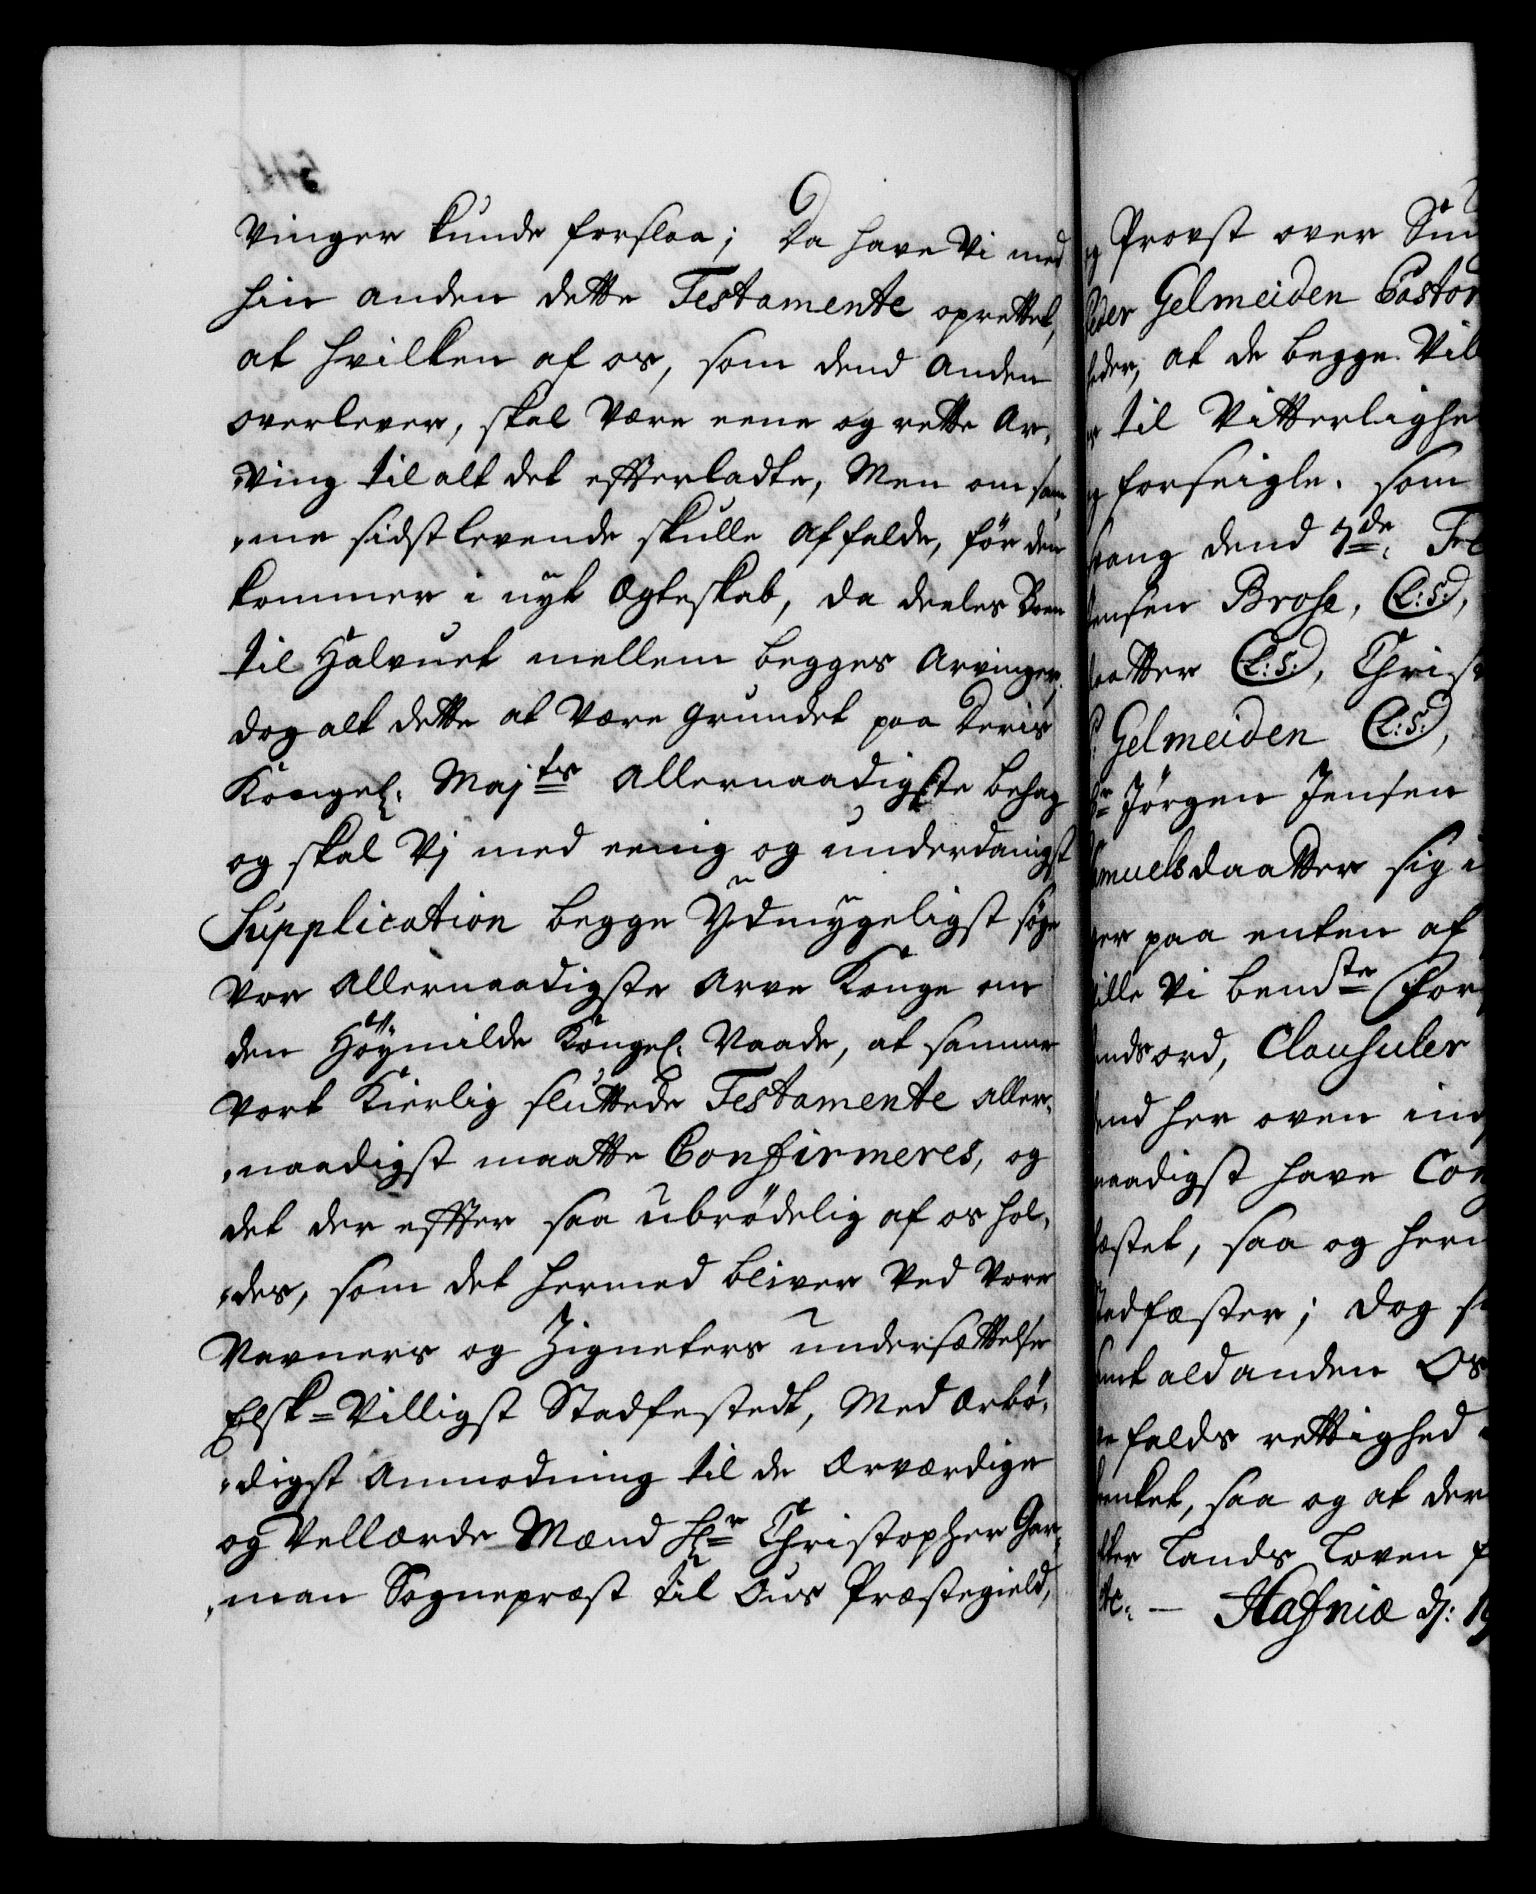 vinger kunde forslaa; Da have Vi med
hin anden dette Testamente oprettet,
at hvilken af os, som dend anden
overlever, skal være eene og rette Ar,
,ving til alt det efterladte, Men om sam,
,me sidstlevende skulle affalde, før den
kommer i nyt Ægteskab, da deeles Boen
til Halvuet mellem begges Arvinger.
dog alt dette at være grundet paa Deris
Kongel. Majts Allernaadigste behag
og skal Vj med eenig og underdanigst
Supplication begge Ydmygeligst søge
vor allernaadigste Arve Konge om
den Høymilde Kongel. Naade, at samme
vort Kierlig sluttede Testamente aller,
,naadigst maatte Confirmeres, og
det der effter saa ubrødelig af os hol,
,des, som det hermed bliver ved vore
Navners og Zigneters undersættelse
Elsk=Villigst Stadfestedt, Med ærbø,
,digst Anmodning til de Ærværdige
og Vellærde Mænd Hr Christopher Gar,
,man Sognepræst til Ous Præstegield,
og Provst over Sun
Peder Gelmeiden Pastor
steder, at de begge Vil
til Vitterlighe
og forseigle. som
dend 7de Fe
Jensen Brose, (L:S:),
daatter (L:S:), Christ
P: Gelmeiden (L:S:),
Hr Jørgen Jensen
Samuelsdaatter sig i
paa enten af
ville Vi bemdte For
ord, Clausuler
her oven ind
naadigst have Con
fæstet, saa og her
stadfæster; dog s
ald anden Os
falds rettighed
saa og at der
effter Lands Loven f
etc. — Hafniæ d: 19